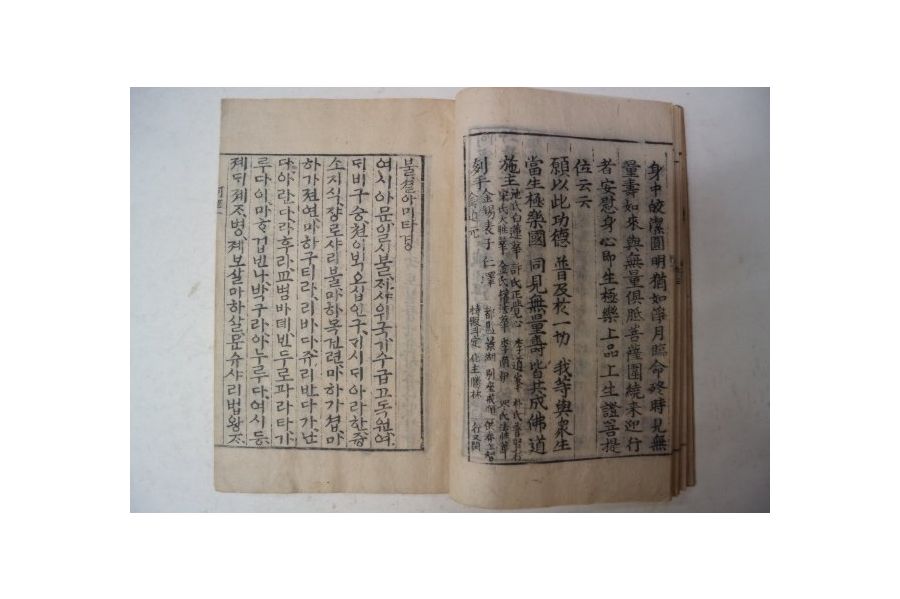 身中皎潔圓明猶如淨月臨命終時見無
量壽如來與無量俱胝菩薩圍繞來迎行
者安慰身心即生極樂上品上生證菩提
位云云
願以此功德 普及於一切 我等與衆生
當生極樂國 同見無量壽 皆共成佛道
施主
刻手
불셜아미타경
여시아문일시불ᄌᆡ샤위국기수급고독원여
ᄃᆡ비구승쳔이ᄇᆡᆨ오십인구ᄀᆡ시ᄃᆡ아라한즁
소지식쟝로샤리불마하목건련마하가셥마
하가젼연마하구티라리바다쥬리반다가난
다아란다라후라교범바뎨빈두로파라타가
루다이마하겁빈나박구라아누루다여시등
졔ᄃᆡ졔ᄌᆞ병졔보살마하살문슈샤리법왕ᄌᆞ